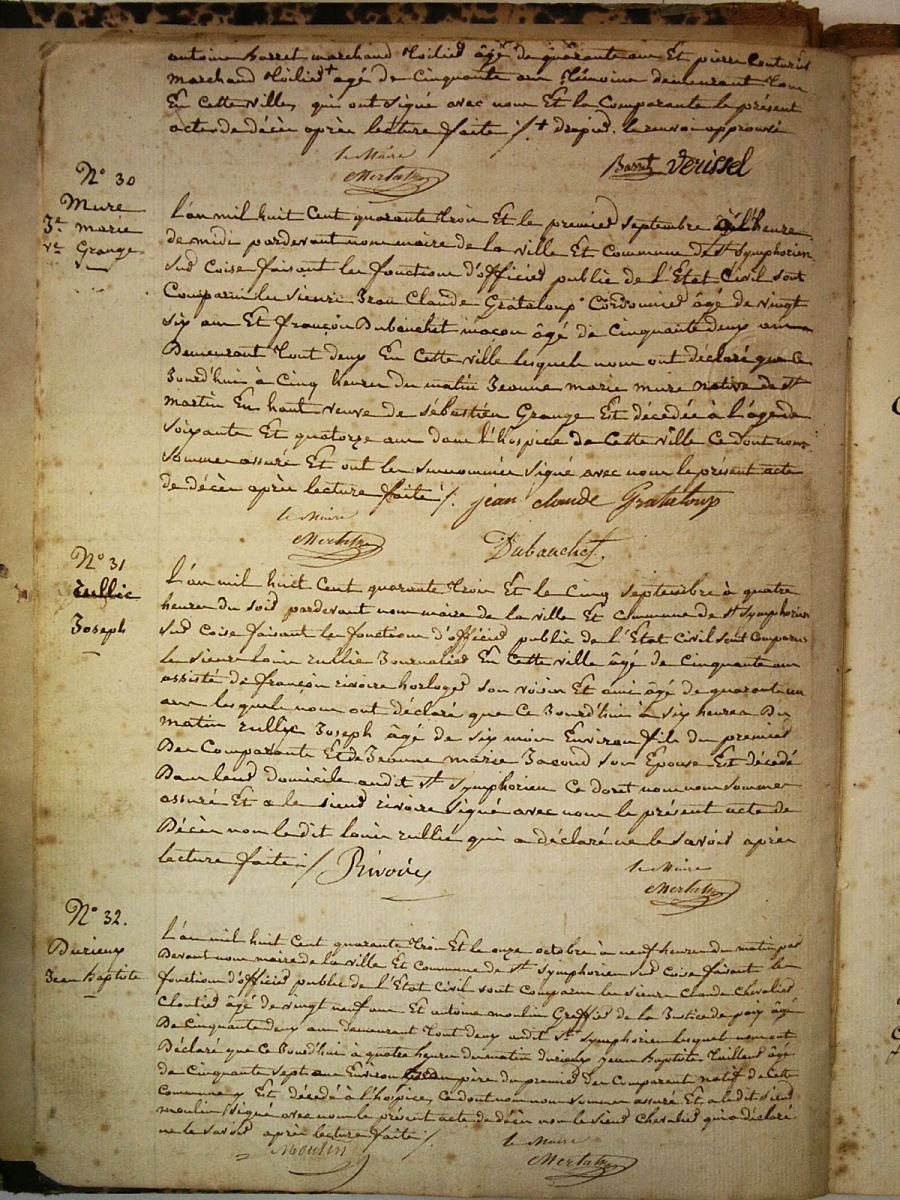 antoine Barret marchand toilier âgé de quarante ans Et pierre
marchand toilier + agé de Cinquante ans témoins demeurant tous
En cette ville, qui ont signé avec nous Et la Comparante le présent
acte de décès après lecture faite ⁒ + drapier. le renvoi approuvé
le Maire
Barret Verissel
N° 30
Mure
Je. marie
ve Grange
L'an mil huit Cent quarante trois Et le premier septembre à l'heure
de midi pardevant nous maire de la ville Et Commune de St Symphorien
sur Coise faisant les fonctions d'officier public de l'Etat Civil sont
Comparus les sieurs Jean Claude Grataloup Cordonnier âgé de vingt
six ans Et françois Dubauchet maçon âgé de Cinquante deux ans
Demeurant tout deux En cette ville lesquels nous ont déclaré que Ce
Jourd'hui à Cinq heures du matin Jeanne marie mure native de St
martin En haut veuve de sébastien Grange Est décédée à l'age de
soixante Et quatorze ans dans l'hospice de Cette ville Ce dont nous
sommes assuré Et ont les surnommés signé avec nous le présent acte
de décès après lecture faite ⁒. jean claude Grataloup
le Maire
Dubauchet.
N° 31
rullie
Joseph
L'an mil huit Cent quarante trois Et le Cinq septembre à quatre
heures du soir pardevant nous maire de la ville Et Commune de St Symphorien
sur Coise faisant les fonctions d'officier public de l'Etat Civil sont Comparus
le sieur Louis rullie Journalier En cette ville âgé de Cinquante ans
assisté de françois rivoire horloger son voisin Et ami âgé de quarante un
ans lesquels nous ont déclaré que Ce Jourd'hui à six heures Du
matin rullie Joseph âgé de six mois Environ fils du premier
Des Comparants Et de Jeanne marie Jacoud son Epouse Est décédé
Dans leur domicile audit St Symphorien Ce dont nous nous sommes
assuré Et a le sieur rivoire signé avec nous le présent acte de
Décès non ledit louis rullie qui a déclaré ne le savoir après
lecture faite ⁒ Rivoire
le Maire
N° 32.
Durieux
Jean Baptiste
L'an mil huit Cent quarante trois Et le onze octobre à neuf heures du matin par
Devant nous maire de la ville Et Commune de St Symphorien sur Coise faisant les
fonctions d'officier public de l'Etat Civil sont Comparus les sieurs Claude Chevalier
Cloutier âgé de vingt neuf ans Et antoine moulin Greffier de la Justice de paix âgé
De Cinquante deux ans Demeurant tout deux audit St Symphorien lesquels nous ont
Déclaré que Ce Jourd'hui à quatre heures du matin durieux Jean Baptiste tailleur âgé
de Cinquante sept ans Environ père du premier des Comparants natif de Cette
Commune Et décédé à l'hospice, Ce dont nous nous sommes assuré Et a ledit sieur
moulin signé avec nous le présent acte de décès non le sieur Chevalier qui a déclaré
ne le savoir après lecture faite ⁒
Moulin
le Maire